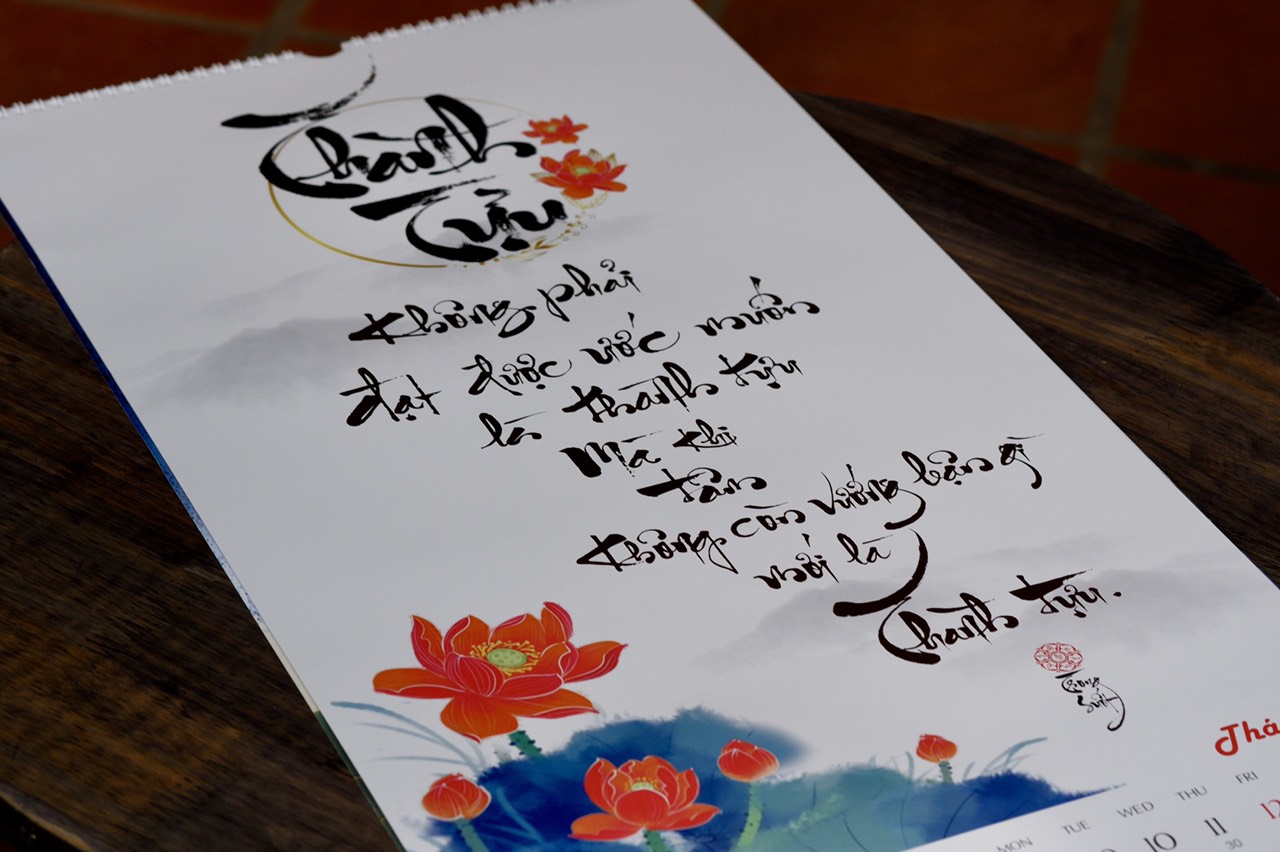 Thành
Tựu
Không phải
đạt được ước muốn
là thành tựu
Mà khi
tâm
không còn vướng bận gì
mới là
Thành tựu.
Thá
MON TUE WED THU FRI
10 11 12
30